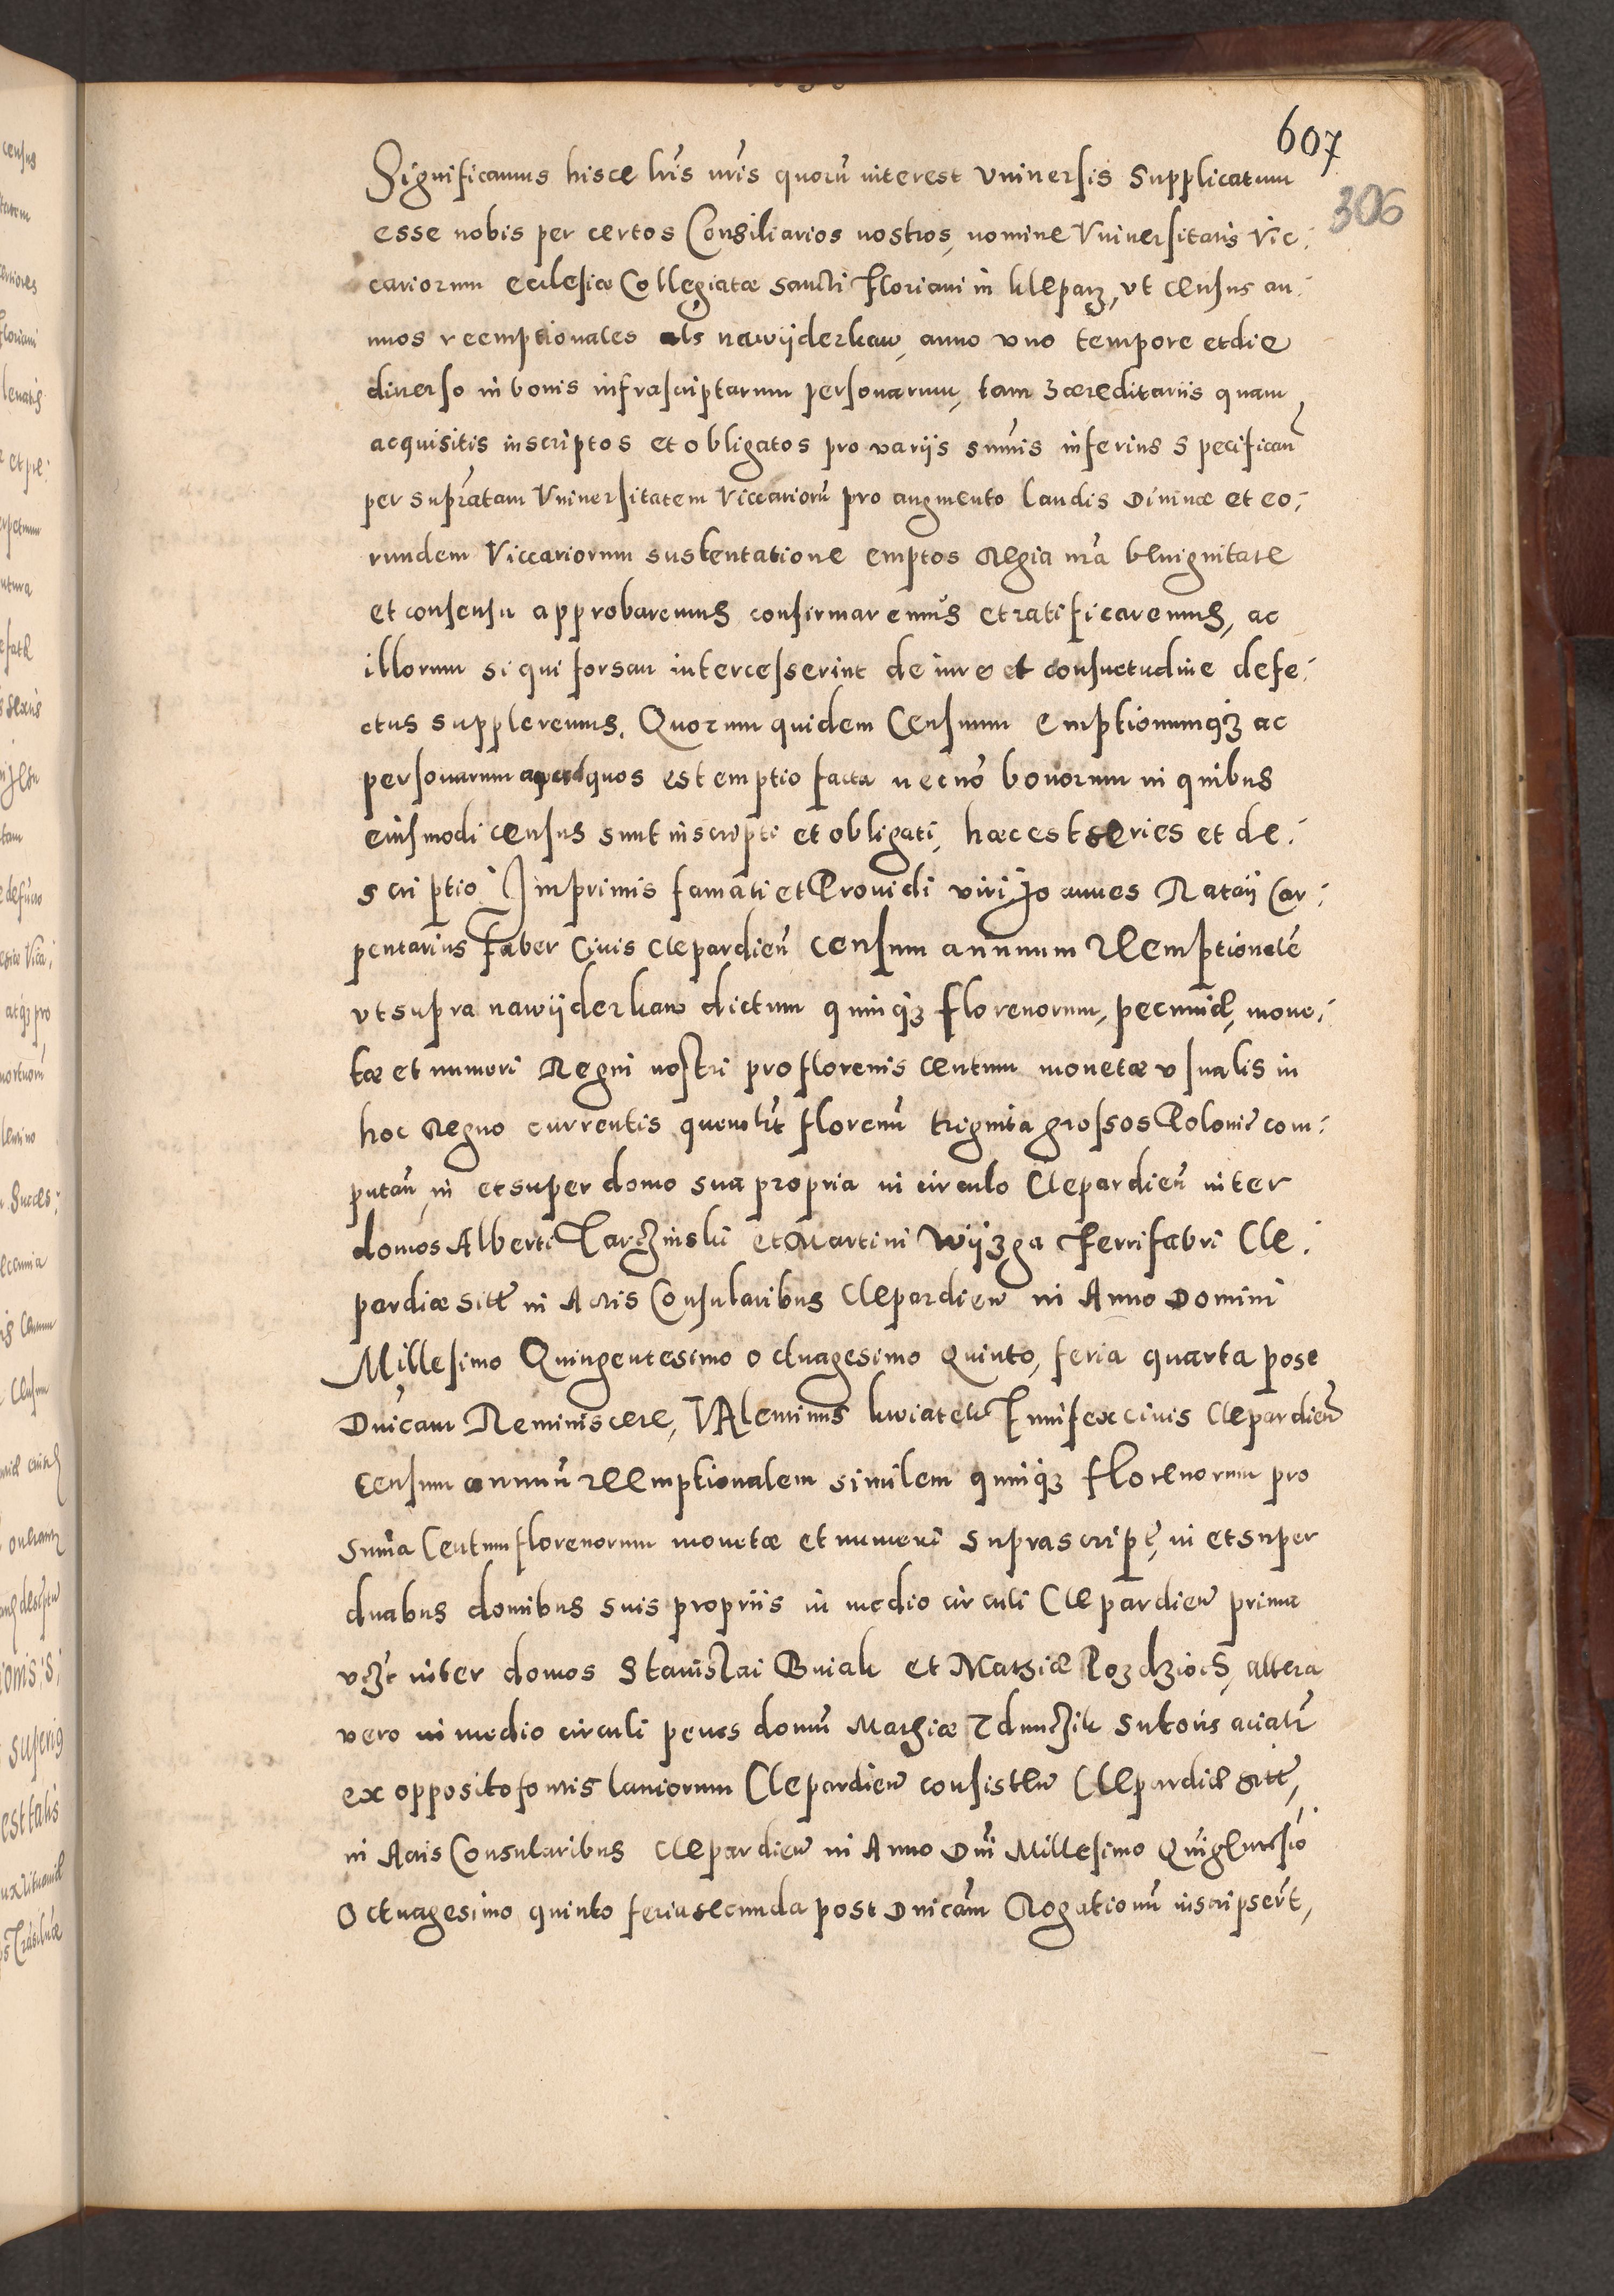 607
306
Significamus hisce lrīs nrīs quorū interest Vniuersis Supplicatum
esse nobis per certos Consiliarios nostros, nomine Vniuersitatis Vic:
cariorum ecclesiæ Collegiatæ Sancti Floriani in Kleparz, vt census an:
nuos reemptionales als nawijderkaw, anno vno tempore et die
diuerso in bonis infrascriptarum personarum, tam hæreditariis quam
acquisitis inscriptos et obligatos pro variis sum̄is inferius specifican̄
per supratam̄ Vniuersitatem Viccariorū pro augmento laudis Diuinæ et eo:
rundem Viccariorum sustentatione emptos Regia nrā benignitate
et consensu approbaremus confirmaremus et ratificaremus, ac
illorum si qui forsan intercesserint de iure et consuetudine defe:
ctus suppleremus. Quorum quidem Censuum emptionumqꝫ ac
personarum apud quos est emptio facta necnō bonorum in quibus
eiusmodi census sunt inscripti et obligati, hæc est series et de:
scriptio Inprimis famati et Prouidi viri Joannes Rataij Car:
pentarius Faber Ciuis Clepardien̄ censum annuum Reemptionalē
vt supra nawijderkaw dictum quinqꝫ florenorum, pecuniæ, mone:
tæ et numeri Regni nostri pro florenis Centum monetæ vsualis in
hoc Regno currentis quemlibt florenū triginta grossos Poloniċ com:
putan̄, in et super domo sua propria in circulo Clepardien̄ inter
domos Alberti Tarczinski et Martini Wijzga Ferrifabri Cle:
pardiæ sitt̄ in Actis Consularibus Clepardien̄ in Anno Domini
Millesimo Quingentesimo octuagesimo Quinto, feria quarta post
Dnīcam Reminiscere, VAlentinus kwiatek Funifex ciuis Clepardien̄
Censum annuū reemptionalem similem quinqꝫ florenorum pro
Sum̄a Centum florenorum monetæ et numeri suprascript̄, in et super
duabus domibus suis propriis in medio circuli Clepardien̄ prima
vczt inter domos Stanislai Buiak et Mathiæ Pozdziоch, altera
vero in medio circuli penes domū Mathiæ Zdunczik Sutoris aciatr̄
ex opposito fontis laniorum Clepardien̄ consisten̄ Clepardiæ sitt̄,
in Actis Consularibus Clepardien̄ in Anno Dn̄i Millesimo Quīgentesīo
Octuagesimo quinto feria secunda post Dnīcam Rogationū inscripserūt,